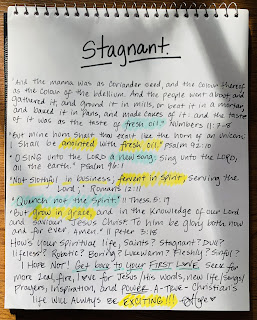 Stagnant.
"And the manna was as coriander seed, and the colour thereof
as the colour of the bdellium. And the people went about, and
gathered it, and ground it in mills, or beat it in a mortar,
and baked it in pans, and made cakes of it: and the taste
of it was as the taste of fresh oil." Numbers 11:7-8
"But mine horn shalt thou exalt like the horn of an unicorn:
I shall be anointed with fresh oil." Psalm 92:10
"O SING unto the LORD a new song: sing unto the LORD,
all the earth." Psalm 96:1
"Not slothful in business; fervent in spirit; serving the
Lord;" Romans 12:11
"Quench not the Spirit." I Thess. 5:19
"But grow in grace, and in the knowledge of our Lord
and Saviour Jesus Christ. To him be glory both now
and for ever. Amen." II Peter 3:18
How's your spiritual life, Saints? Stagnant? Dull?
Lifeless? Robotic? Boring? Lukewarm? Fleshly? Sinful?
I Hope NOT! Get back to your FIRST LOVE. Seek for
more zeal, fire, love for Jesus, His words, new life, songs,
prayers, inspiration, and POWER. A-true-Christian's
life will always be EXCITING!!!